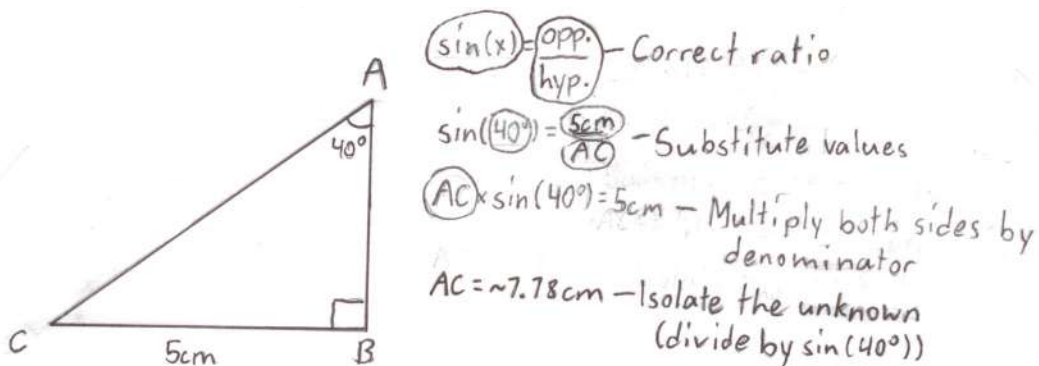 A
40°
C
5cm
B
sin(x) = opp. / hyp. - Correct ratio
sin(40°) = 5cm / AC - Substitute values
AC × sin(40°) = 5cm - Multiply both sides by
denominator
AC = ~7.78cm - Isolate the unknown
(divide by sin(40°))